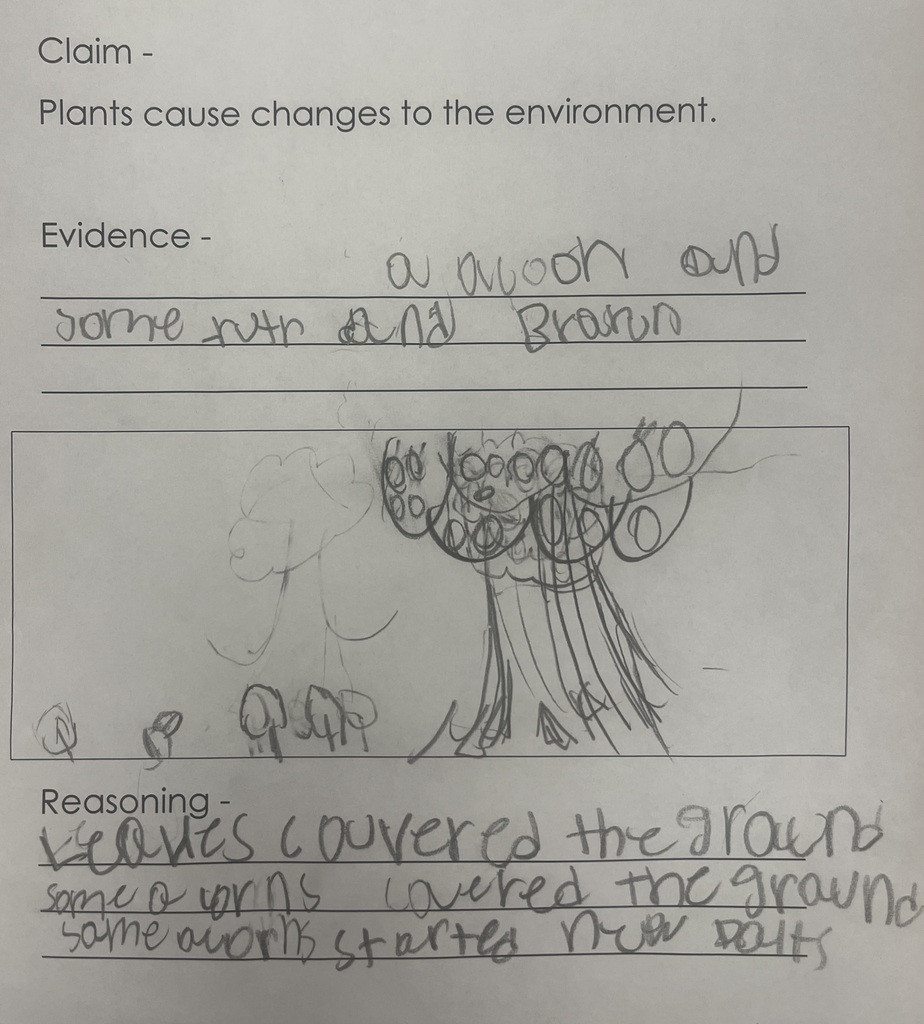 Claim -
Plants cause changes to the environment.
Evidence -
a and
some and Brown
Reasoning -
Leaves couvered the ground
some acorns covered the ground
some acorns started new